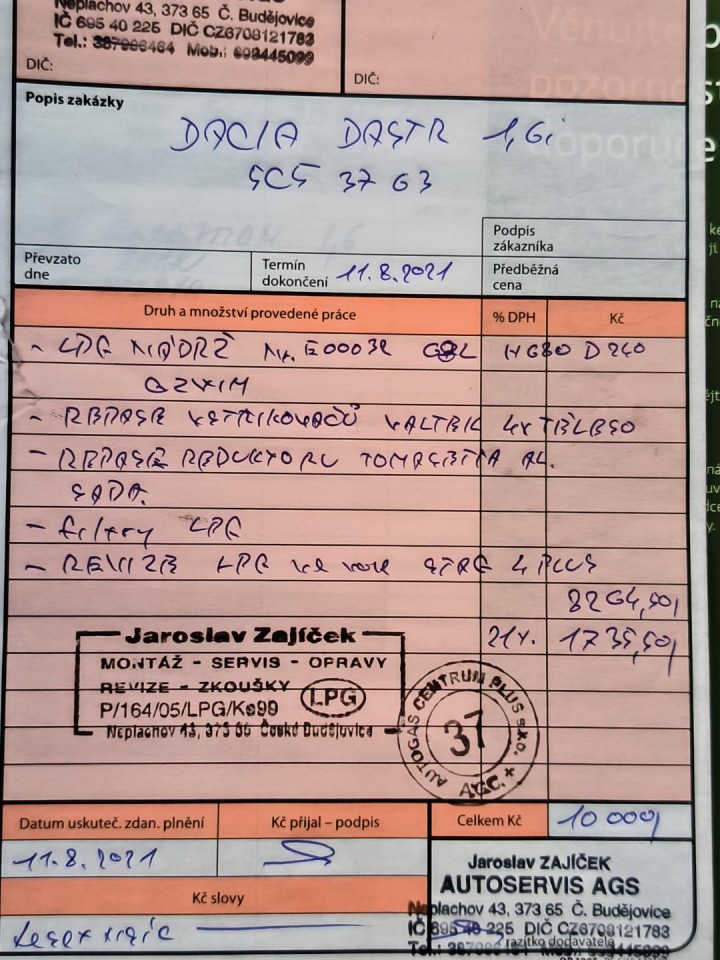 Neplachov 43, 373 65 Č. Budějovice
IČ 695 40 225 DIČ CZ6708121783
Tel.: 387996464 Mob.: 603445099
DIČ:
DIČ:
Popis zakázky
DACIA DASTR 1,6i
5C5 37 63
Podpis zákazníka
Převzato dne
Termín dokončení 11.8.2021
Předběžná cena
Druh a množství provedené práce % DPH Kč
- LPG NÁDRŽ E00032 H680 D240
- REPASE VSTŘIKOVAČŮ VALTEK 4x TĚLESO
- REPASE REDUKTORU TOMASETTA AL.
SADA.
- filtry LPG
- REVIZE LPG STAG 4 PLUS
8264,50,
21%. 1735,50,
Jaroslav Zajíček
MONTÁŽ - SERVIS - OPRAVY
REVIZE - ZKOUŠKY
LPG
P/164/05/LPG/Ks99
Neplachov 43, 373 65 České Budějovice
AUTOGAS CENTRUM PLUS s.r.o.
37
A.G.C.
Datum uskuteč. zdan. plnění
Kč přijal – podpis
Celkem Kč 10 000,
11.8.2021
Kč slovy
Jaroslav ZAJÍČEK
AUTOSERVIS AGS
Neplachov 43, 373 65 Č. Budějovice
IČ 695 40 225 DIČ CZ6708121783
razítko dodavatele